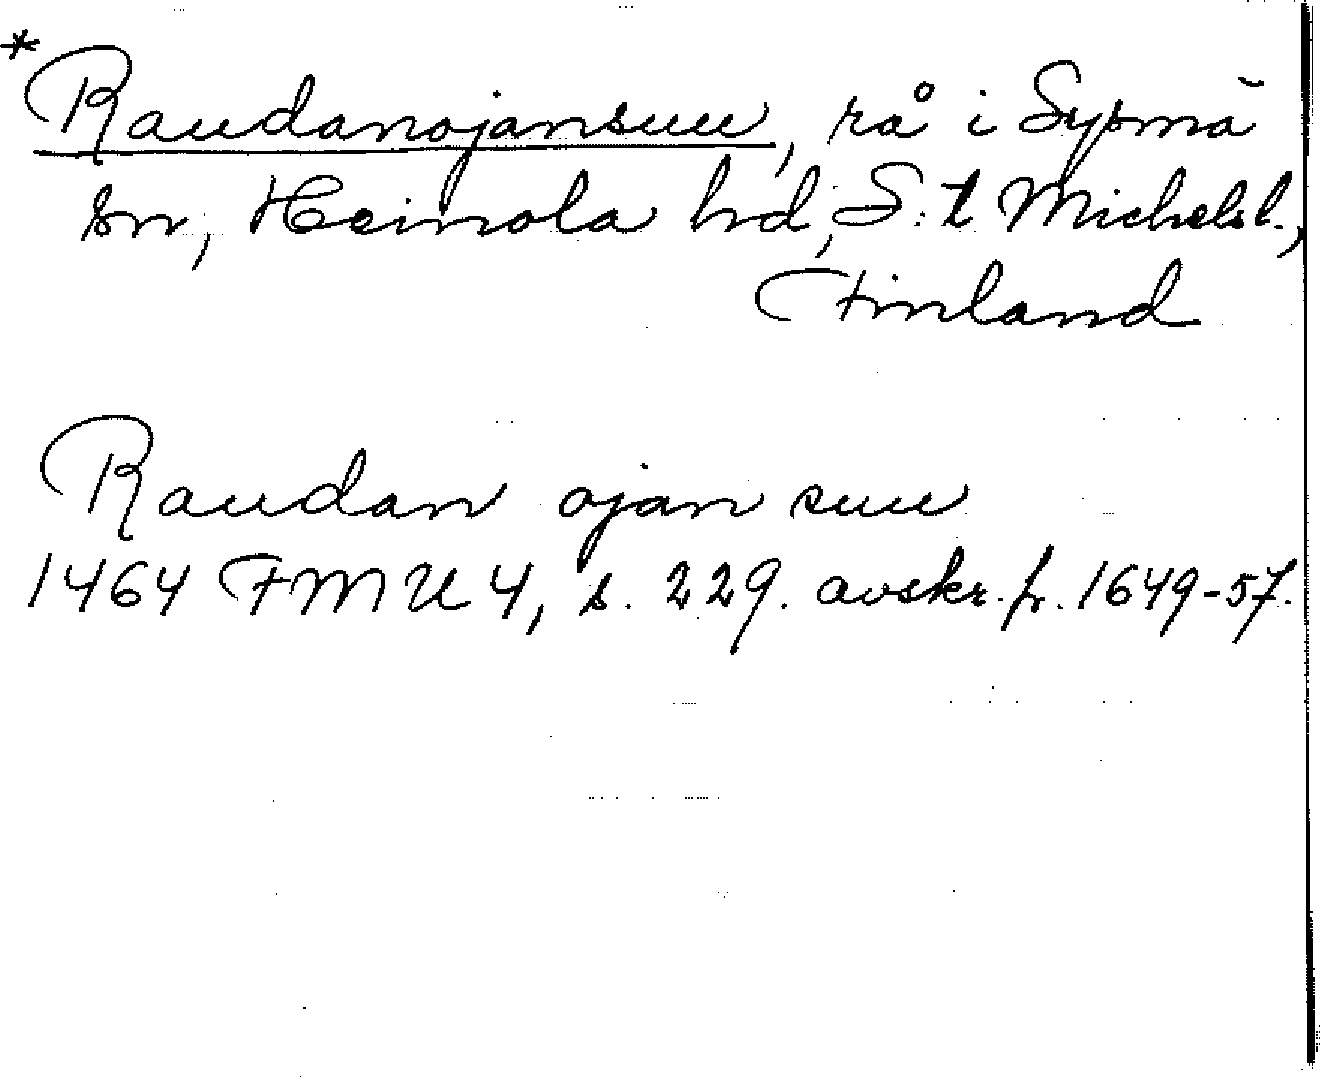 * Raudanojansuu, rå i Sysmä
sn, Heinola hd, S:t Michels l.,
Finland
Raudan ojan suu
1464 FMU 4, s. 229. avskr. fr. 1649-57.